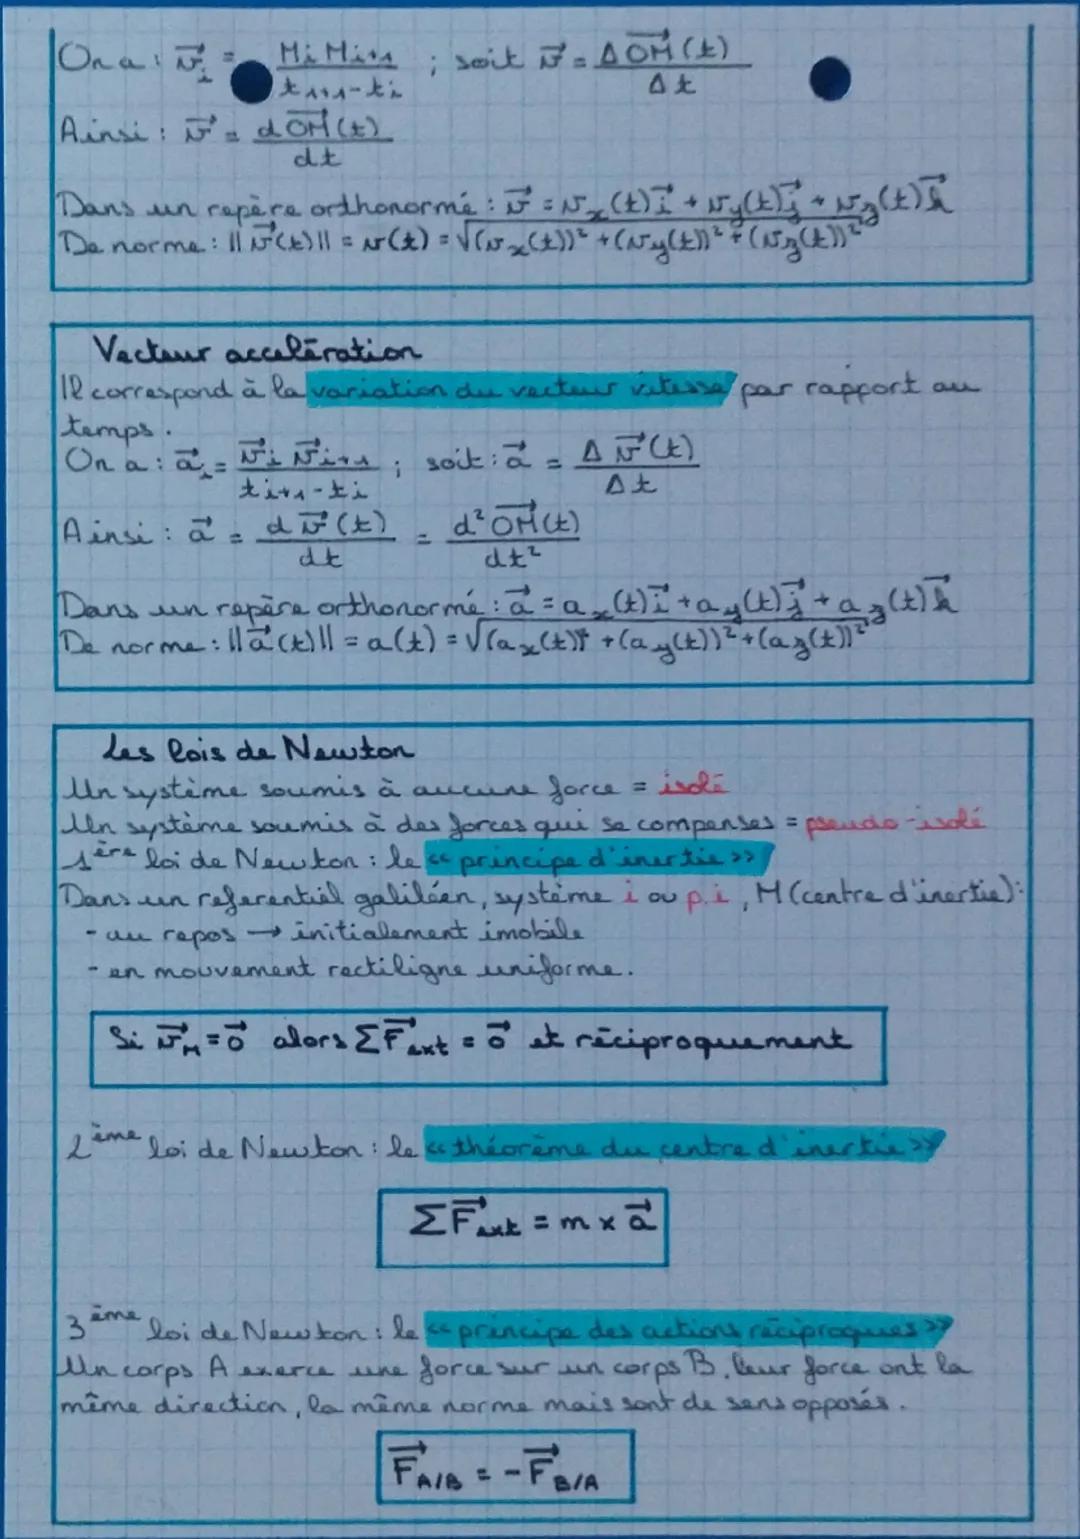 On a : v⃗ᵢ = MᵢMᵢ₊₁ / tᵢ₊₁-tᵢ ; soit v⃗ = ΔOM⃗(t) / Δt
Ainsi : v⃗ = dOM⃗(t) / dt
Dans un repère orthonormé : v⃗ = vₓ(t)i⃗ + v_y(t)j⃗ + v_z(t)k⃗
De norme : ||v⃗(t)|| = v(t) = √(vₓ(t))² + (v_y(t))² + (v_z(t))²
Vecteur accelération
Il correspond à la variation du vecteur vitesse par rapport au
temps.
On a : a⃗ᵢ = v⃗ᵢ v⃗ᵢ₊₁ / tᵢ₊₁-tᵢ ; soit : a⃗ = Δv⃗(t) / Δt
Ainsi : a⃗ = dv⃗(t) / dt = d²OM⃗(t) / dt²
Dans un repère orthonormé : a⃗ = aₓ(t)i⃗ + a_y(t)j⃗ + a_z(t)k⃗
De norme : ||a⃗(t)|| = a(t) = √(aₓ(t))² + (a_y(t))² + (a_z(t))²
Les lois de Newton
Un système soumis à aucune force = isolé
Un système soumis à des forces qui se compenses = pseudo-isolé
1ère loi de Newton : le « principe d'inertie »
Dans un referentiel galiléen, système i ou p.i, M (centre d'inertie) :
- au repos → initialement imobile
- en mouvement rectiligne uniforme.
Si v⃗_M = 0⃗ alors ΣF⃗ext = 0⃗ et réciproquement
2ème loi de Newton : le « théorème du centre d'inertie »
ΣF⃗ext = m x a⃗
3ème loi de Newton : le « principe des actions réciproques »
Un corps A exerce une force sur un corps B, leur force ont la
même direction, la même norme mais sont de sens opposés.
F⃗A/B = -F⃗B/A